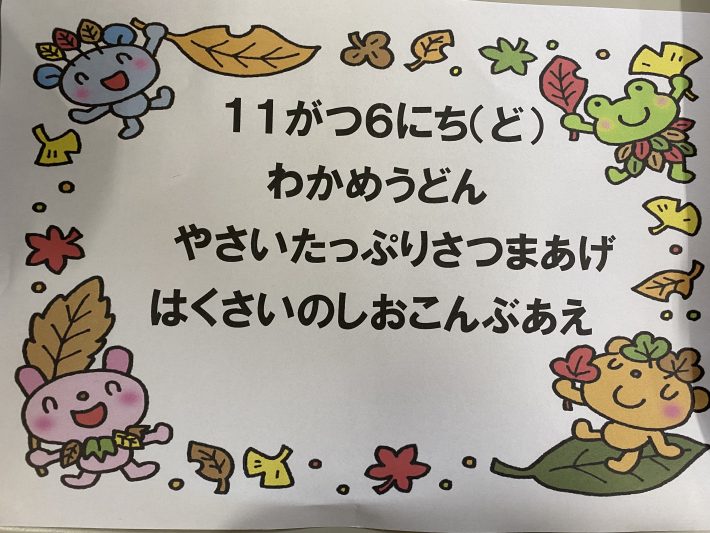 11がつ6にち(ど)
わかめうどん
やさいたっぷりさつまあげ
はくさいのしおこんぶあえ